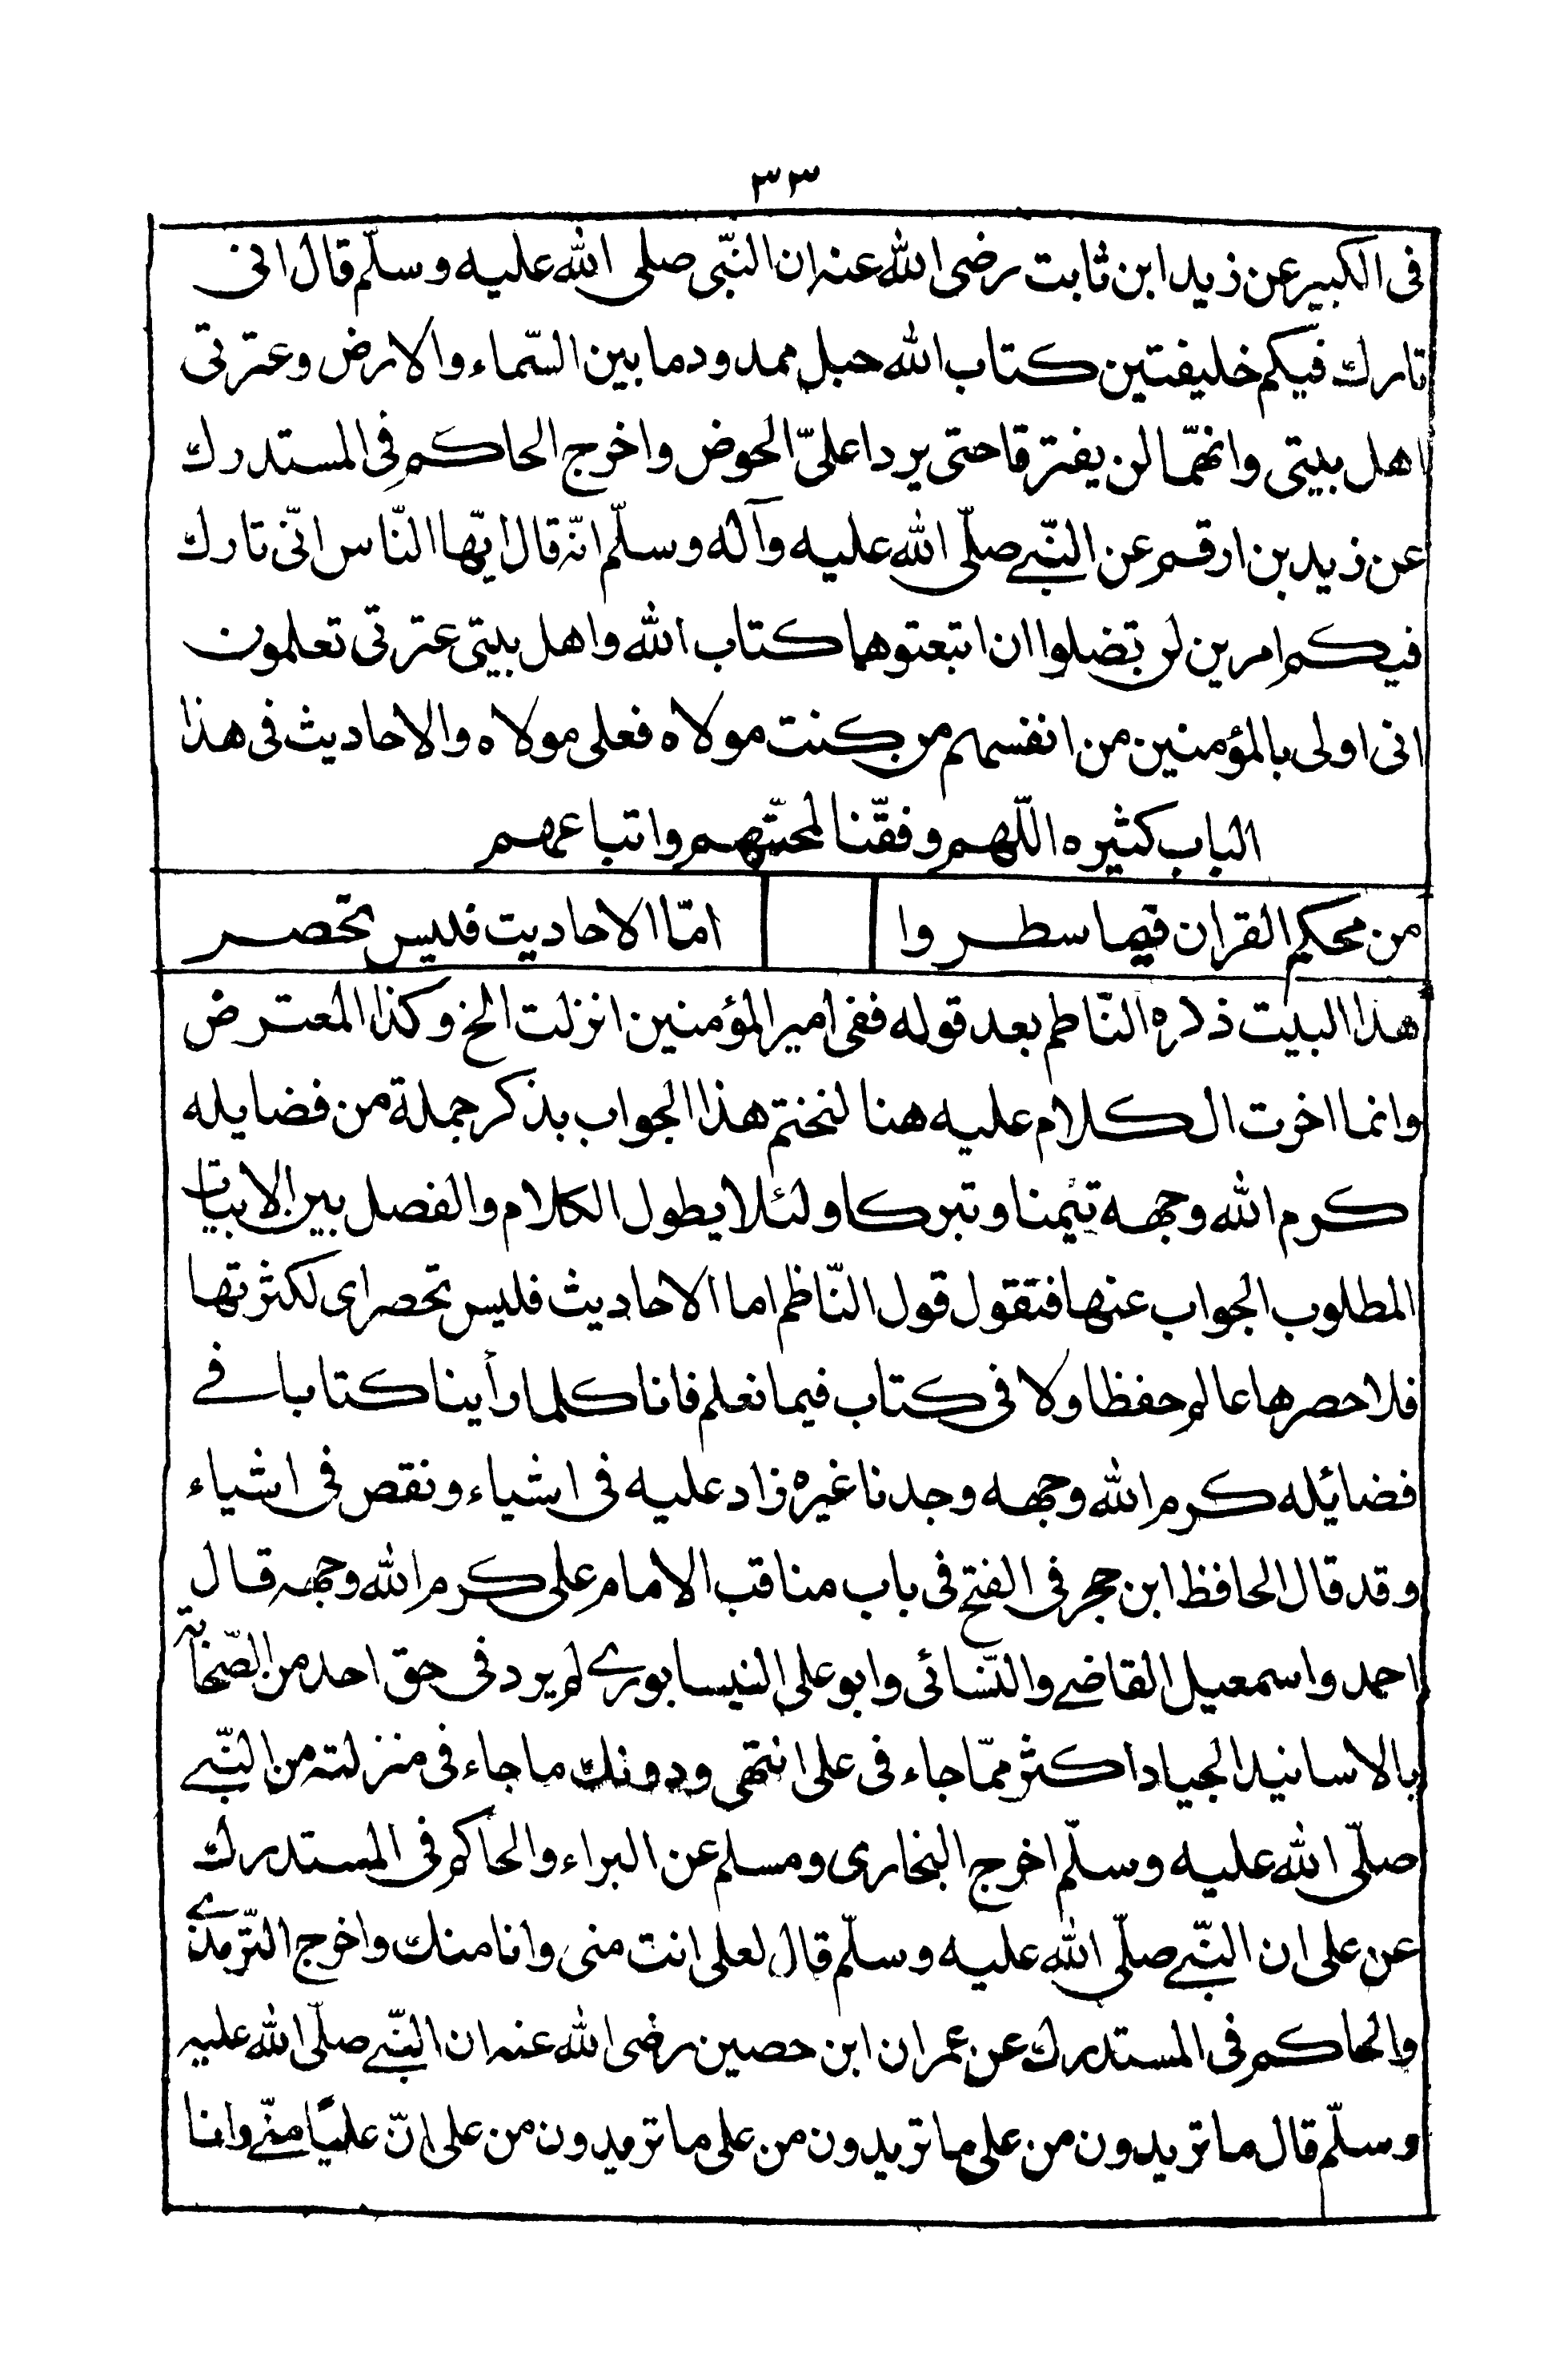 ٣٣
فى الكبير عن زيد ابن ثابت رضى الله عنه ان النّبى صلى الله عليه وسلّم قال انى
تارك فيكم خليفتين كتاب الله حبل ممدود ما بين السّماء والارض وعترتى
اهل بيتى وانهّما لن يفترقا حتى يردا علىّ الحوض واخرج الحاكم فى المستدرك
عن زيد بن ارقم عن النّبي صلّى الله عليه وآله وسلّم انّه قال ايّها النّاس انّى تارك
فيكم امرين لن تضلوا ان اتبعتوهما كتاب الله واهل بيتى عترتى تعلمون
انى اولى بالمؤمنين من انفسهم من كنت مولاه فعلى مولاه والاحاديث فى هذا
الباب كثيره اللّهم وفقّنا لمحبّتهم واتباعهم
من محكم القران فيما سطروا اما الاحاديت فليس تحصر
هذا البيت ذكره النّاظم بعد قوله ففى امير المؤمنين انزلت الخ وكذا المعترض
وانما اخرت الكلام عليه هنا لنختم هذا الجواب بذكر جملة من فضايله
كرم الله وجهه تيمنا وتبركا ولئلا يطول الكلام والفصل بين الابيات
المطلوب الجواب عنها فنقول قول النّاظم اما الاحاديث فليس تحصر اى لكثرتها
فلا حصرها عالم حفظا ولا فى كتاب فيما نعلم فانا كلما رأينا كتابا في
فضائيله كرم الله وجهه وجدنا غيره زاد عليه فى اشياء ونقص فى اشياء
وقد قال الحافظ ابن حجر فى الفتح فى باب مناقب الامام على كرم الله وجهه قال
احمد واسمعيل القاضي والنّسائى وابو على النيسابوري لم يرد فى حق احد من الصّحابة
بالاسانيد الجياد اكثر ممّا جاء فى على انتهى ودونك ما جاء فى منزلته من النّبي
صلّى الله عليه وسلّم اخرج البخارى ومسلم عن البراء والحاكم فى المستدرك
عن على ان النّبي صلّى الله عليه وسلّم قال لعلى انت منى وانا منك واخرج التّرمذي
والحاكم فى المستدرك عن عمران ابن حصين رضى الله عنه ان النّبي صلّى الله عليه
وسلّم قال ما تريدون من على ما تريدون من على ما تريدون من على انّ عليًا منّي وانا